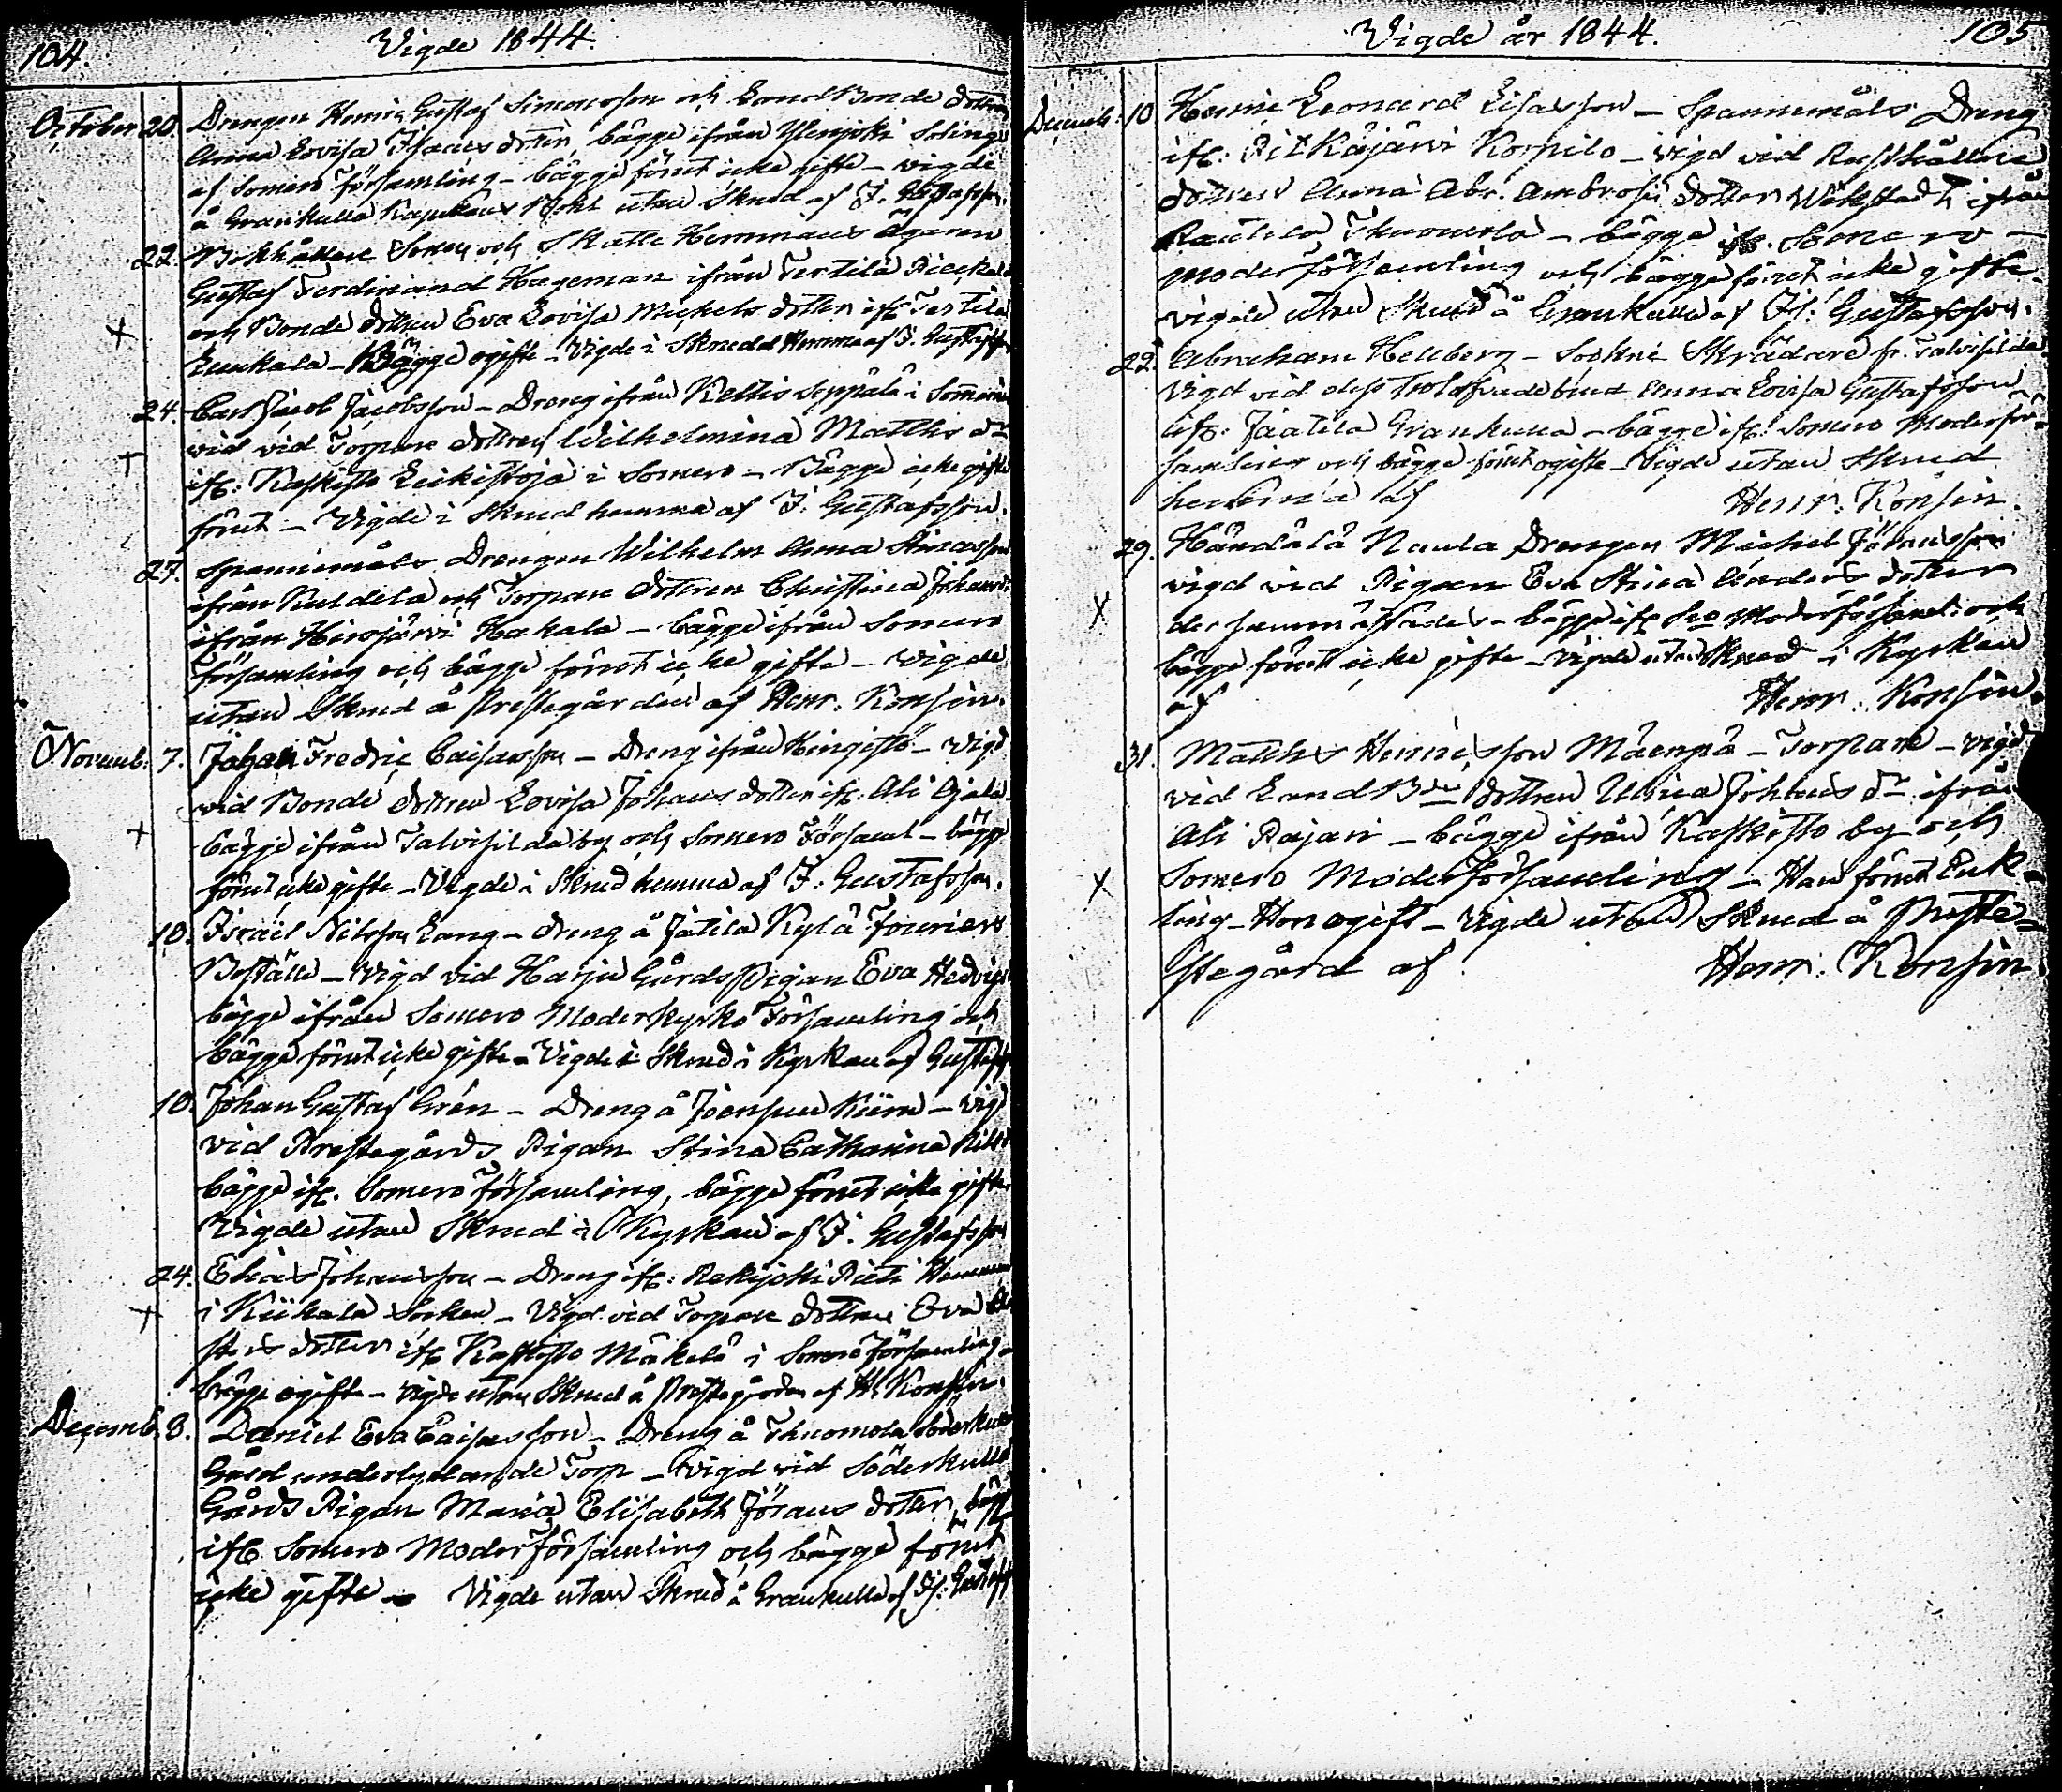 104.
Vigde 1844.
October 20. Drengen Henric Gustaf Simonsson och Land Bonde dottren
Anna Lovisa Isaacs dotter, bägge ifrån Ylenjoki
af Somero församling - bägge förut icke gifte - vigde
å Grankulla utan Skrud af J. Gustafsson.
22. Bokhållare Sonen och Skatte Hemmans Ägaren
Gustaf Ferdinand Hageman ifrån Tertilä
och Bonde dottren Eva Lovisa Michels dotter ifr. Tertilä
- Bägge ogifte - Vigde i Skrud Hemma af J. Gustafss
24. Carl Jacob Jacobsson - Dreng ifrån Keltis Seppälä i Somero
vid vid Torpare dottren Wilhelmina Matths dr
ifr: Kaskisto i Somero - Bägge icke gifte
förut - Vigde i Skrud hemma af J. Gustafsson.
27. Spannemåls Drengen Wilhelm
ifrån och Torpare dottren Christina Johans
ifrån Hirsjärvi Hakala - bägge ifrån Somero
församling och bägge förut icke gifte - Vigde
utan Skrud å Prestegården af Henr. Konsin.
Novemb. 7. Johan Fredric Caisasson - Dreng ifrån Hingistö - Vigd
vid Bonde dottren Lovisa Johans dotter ifr. Ali
bägge ifrån Talvisilda by och Somero Församl - bägge
förut icke gifte - Vigde i Skrud hemma af J. Gustafsson.
10. Israel Nilsson Lang - dreng å Jatila Kylä Fouriers
Boställe - Vigd vid Harju Gårds Pigan Eva Hedvig
bägge ifrån Somero Moderkyrko Församling och
bägge förut icke gifte - Vigde i Skrud i Kyrkan af Gustafss
10. Johan Gustaf Grén - Dreng å Joensuu - Vigd
vid Prestegårds Pigan Stina Catharina
bägge ifr. Somero församling, bägge förut icke gifte
Vigde utan Skrud i Kyrkan af J. Gustafsson
24. Elias Johansson - Dreng ifr: Rekijoki
i Kiikala Socken - Vigd vid Torpare dottren Eva
dotter ifr Kaskisto Mäkelä i Somero församling -
bägge ogifte - Vigde utan Skrud å Prestegården af H. Konsin.
Decemb. 8. Daniel Eva Caisasson - Dreng å Thuomola Söderkulla
Gård underlydande Torp - Vigd vid Söderkulla
Gårds Pigan Maria Elisabeth Jörans dotter, bägge
ifr Somero Moderförsamling och bägge förut
icke gifte - Vigde utan Skrud å Grankulla af J. Gustafss
Vigde år 1844.
105
Decemb. 10 Henric Leonard Eliasson - Spannemåls Dreng
ifr: Pitkäjärvi Korpilo - Vigd vid Rusthållare
dottren Anna Abr. Ambrosii dotter Wikstedt ifrån
Rautela Thuomola - bägge ifr. Somero -
Moderförsamling och bägge förut icke gifte
Vigde utan Skrud å Grankulla af J. Gustafsson.
22. Abraham Hellberg - Sockne Skräddare fr. Talvisilda
Vigd vid dess Trolofvade brud Anna Lovisa Gustafsson
ifr: Jaatila Grankulla - bägge ifr: Somero Moderför-
samling och bägge förut ogifte - Vigde utan Skrud
hemma af Henr. Konsin.
29. Händälä Naula Drengen Michel Johansson
vigd vid Pigan Eva Stina Anders dotter
dersammastädes - bägge ifr Sro Moderförsaml: och
bägge förut icke gifte - Vigde utan Skrud i Kyrkan
af Henr. Konsin.
31. Matths Henricsson Mäenpä - Torpare - vigd
vid Land Bde dottren Ulrica Johans dr ifrån
Ali Pajari - bägge ifrån Kaskisto by och
Somero Moderförsamling - Han förut Enk-
ling - Hon ogift - Vigde utan Skrud å Preste-
stegård af Henr. Konsin.